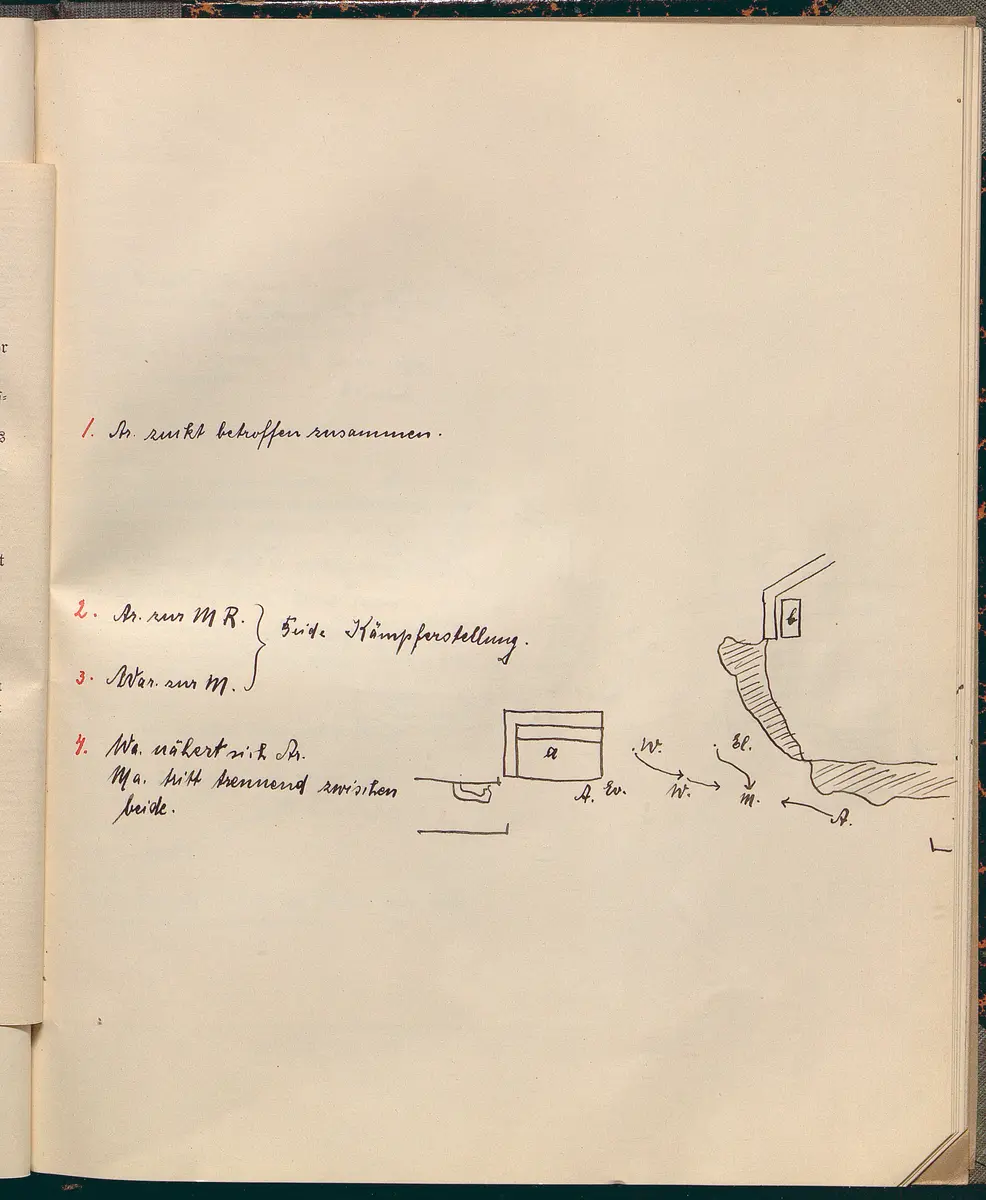 1. Ar. zuckt betroffen zusammen.
2. Ar. zur M R.
Beide Kämpferstellung.
3. War. zur M.
4. Wa. nähert sich Ar.
Ma. tritt trennend zwischen
beide.
b
a
W.
El.
A. Ev.
W.
M.
A.
r
s
t